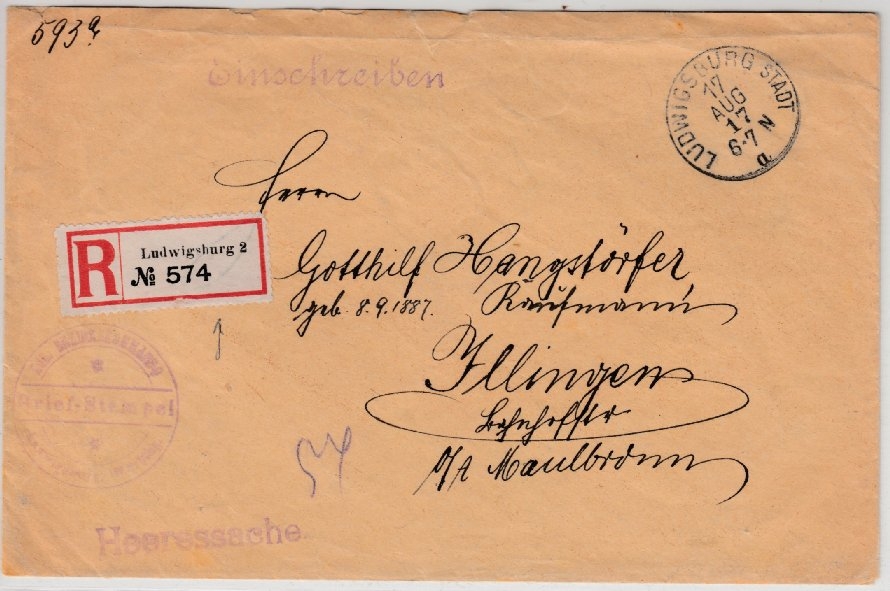 593a
Einschreiben
LUDWIGSBURG STADT
17
AUG
17
6-7 N
a
Herrn
Gotthilf Hangstörfer
geb. 8.9.1887. Kaufmann
Illingen
Bahnhofstr
O/A Maulbronn
R
Ludwigsburg 2
№ 574
Brief-Stempel
54
Heeressache.